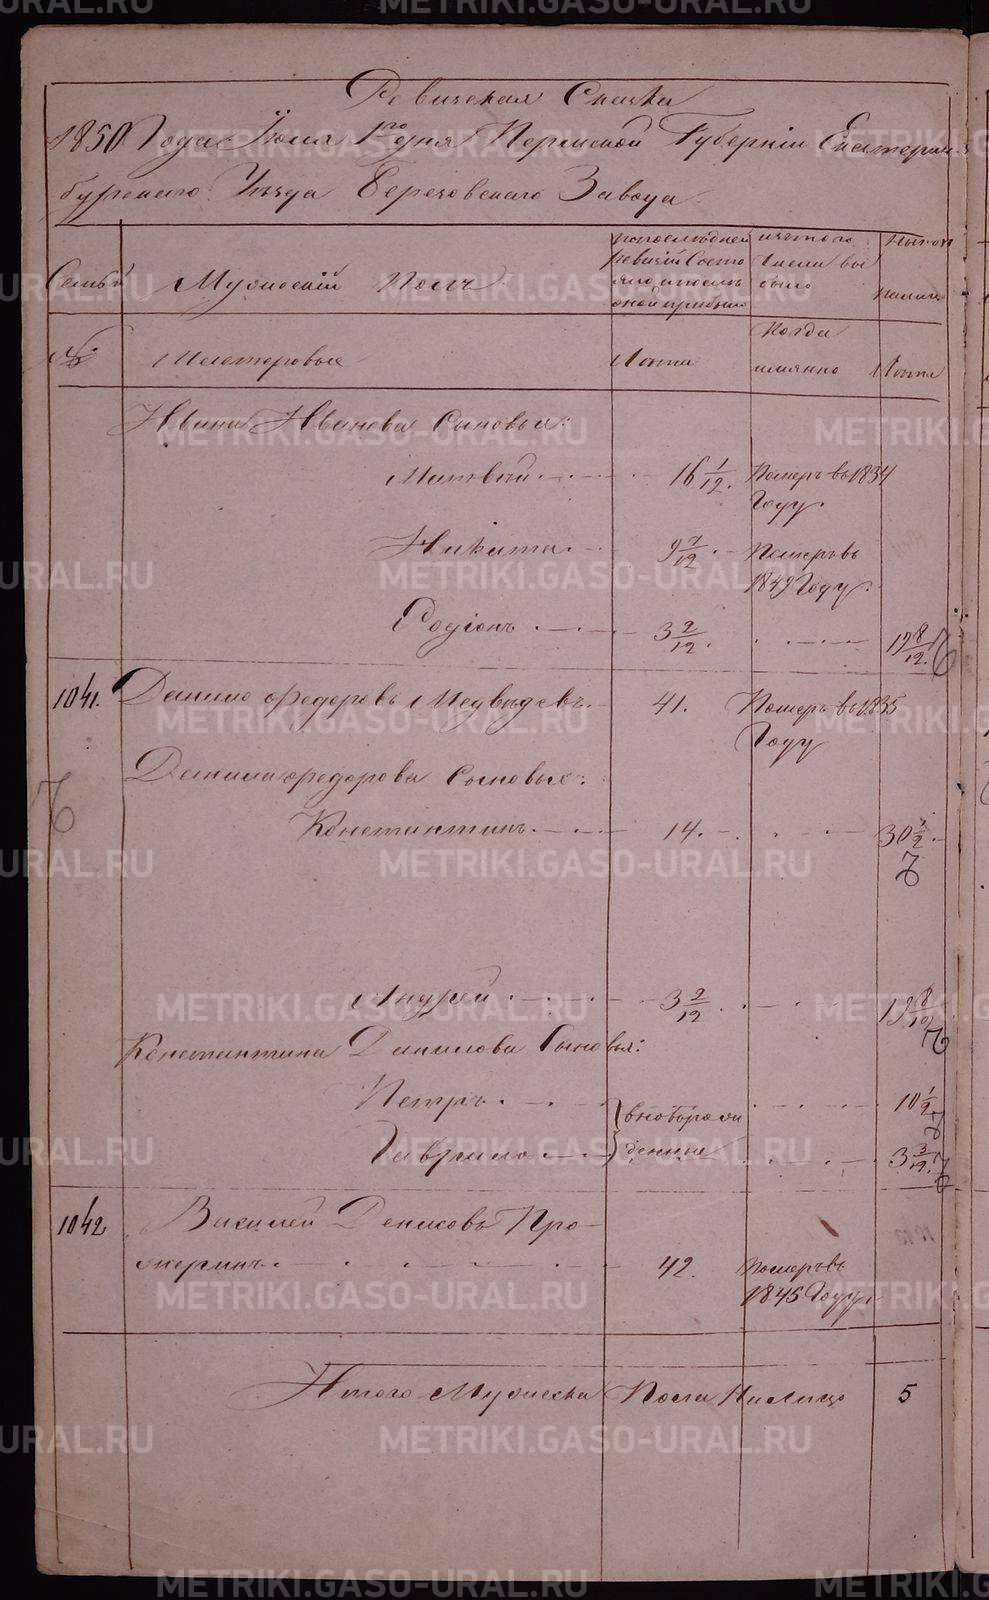 Ревизская Сказка
1850 Года Июня 1го дня Пермской Губернiи Екатерин
бургскаго Уезда Березовскаго Завода
Семьи
Мужескiй Полъ
По последней
ревизiи Состо
яло и после
оной прибыло
Изъ того
Числа вы
было
Ныне
на лицо
№
Мастеровые
Лета
Когда
имянно
Лета
Ивана Иванова Сыновья:
Матвей 16 1/12. Померъ въ 1834
Году.
Никита 9 7/12 Померъ въ
1849 Году.
Родiонъ 3 2/12 19 8/12.
1041. Данило Федоровъ Медведевъ. 41. Померъ въ 1835
Году
Данила Федорова Сыновья:
Константинъ 14. 30 1/2.
Андрей 3 2/12 19 8/12
Константина Данилова Сыновья:
Петръ 10 1/2
вновь рож
денные
Гаврило 3 3/12.
1042 Василей Денисовъ Про-
скеринъ 42. Померъ въ
1845 Году.
Итого Мужеска Пола На Лицо 5
METRIKI.GASO-URAL.RU